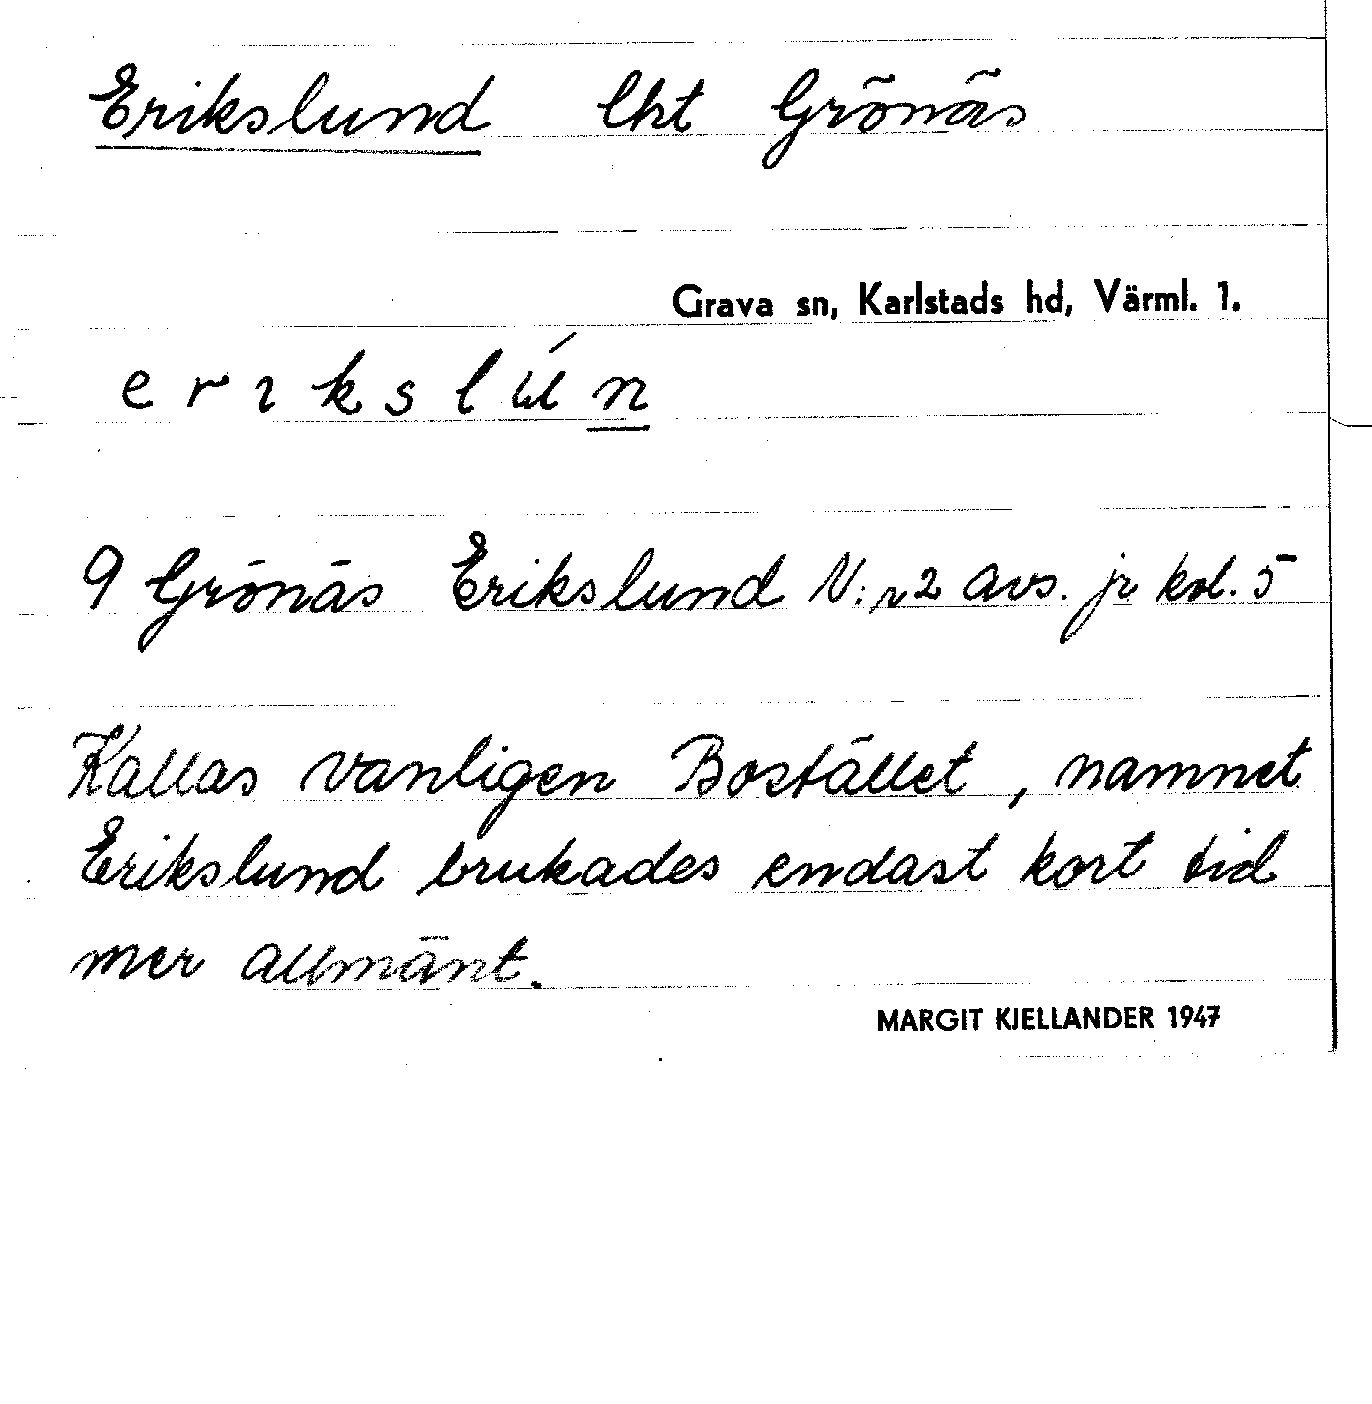 Erikslund lht Grönäs
Grava sn, Karlstads hd, Värml. 1.
e r ı k s l ú n
9 Grönäs Erikslund N:r 2 avs. jr kol. 5
Kallas vanligen Bostället, namnet
Erikslund brukades endast kort tid
mer allmänt.
MARGIT KJELLANDER 1947